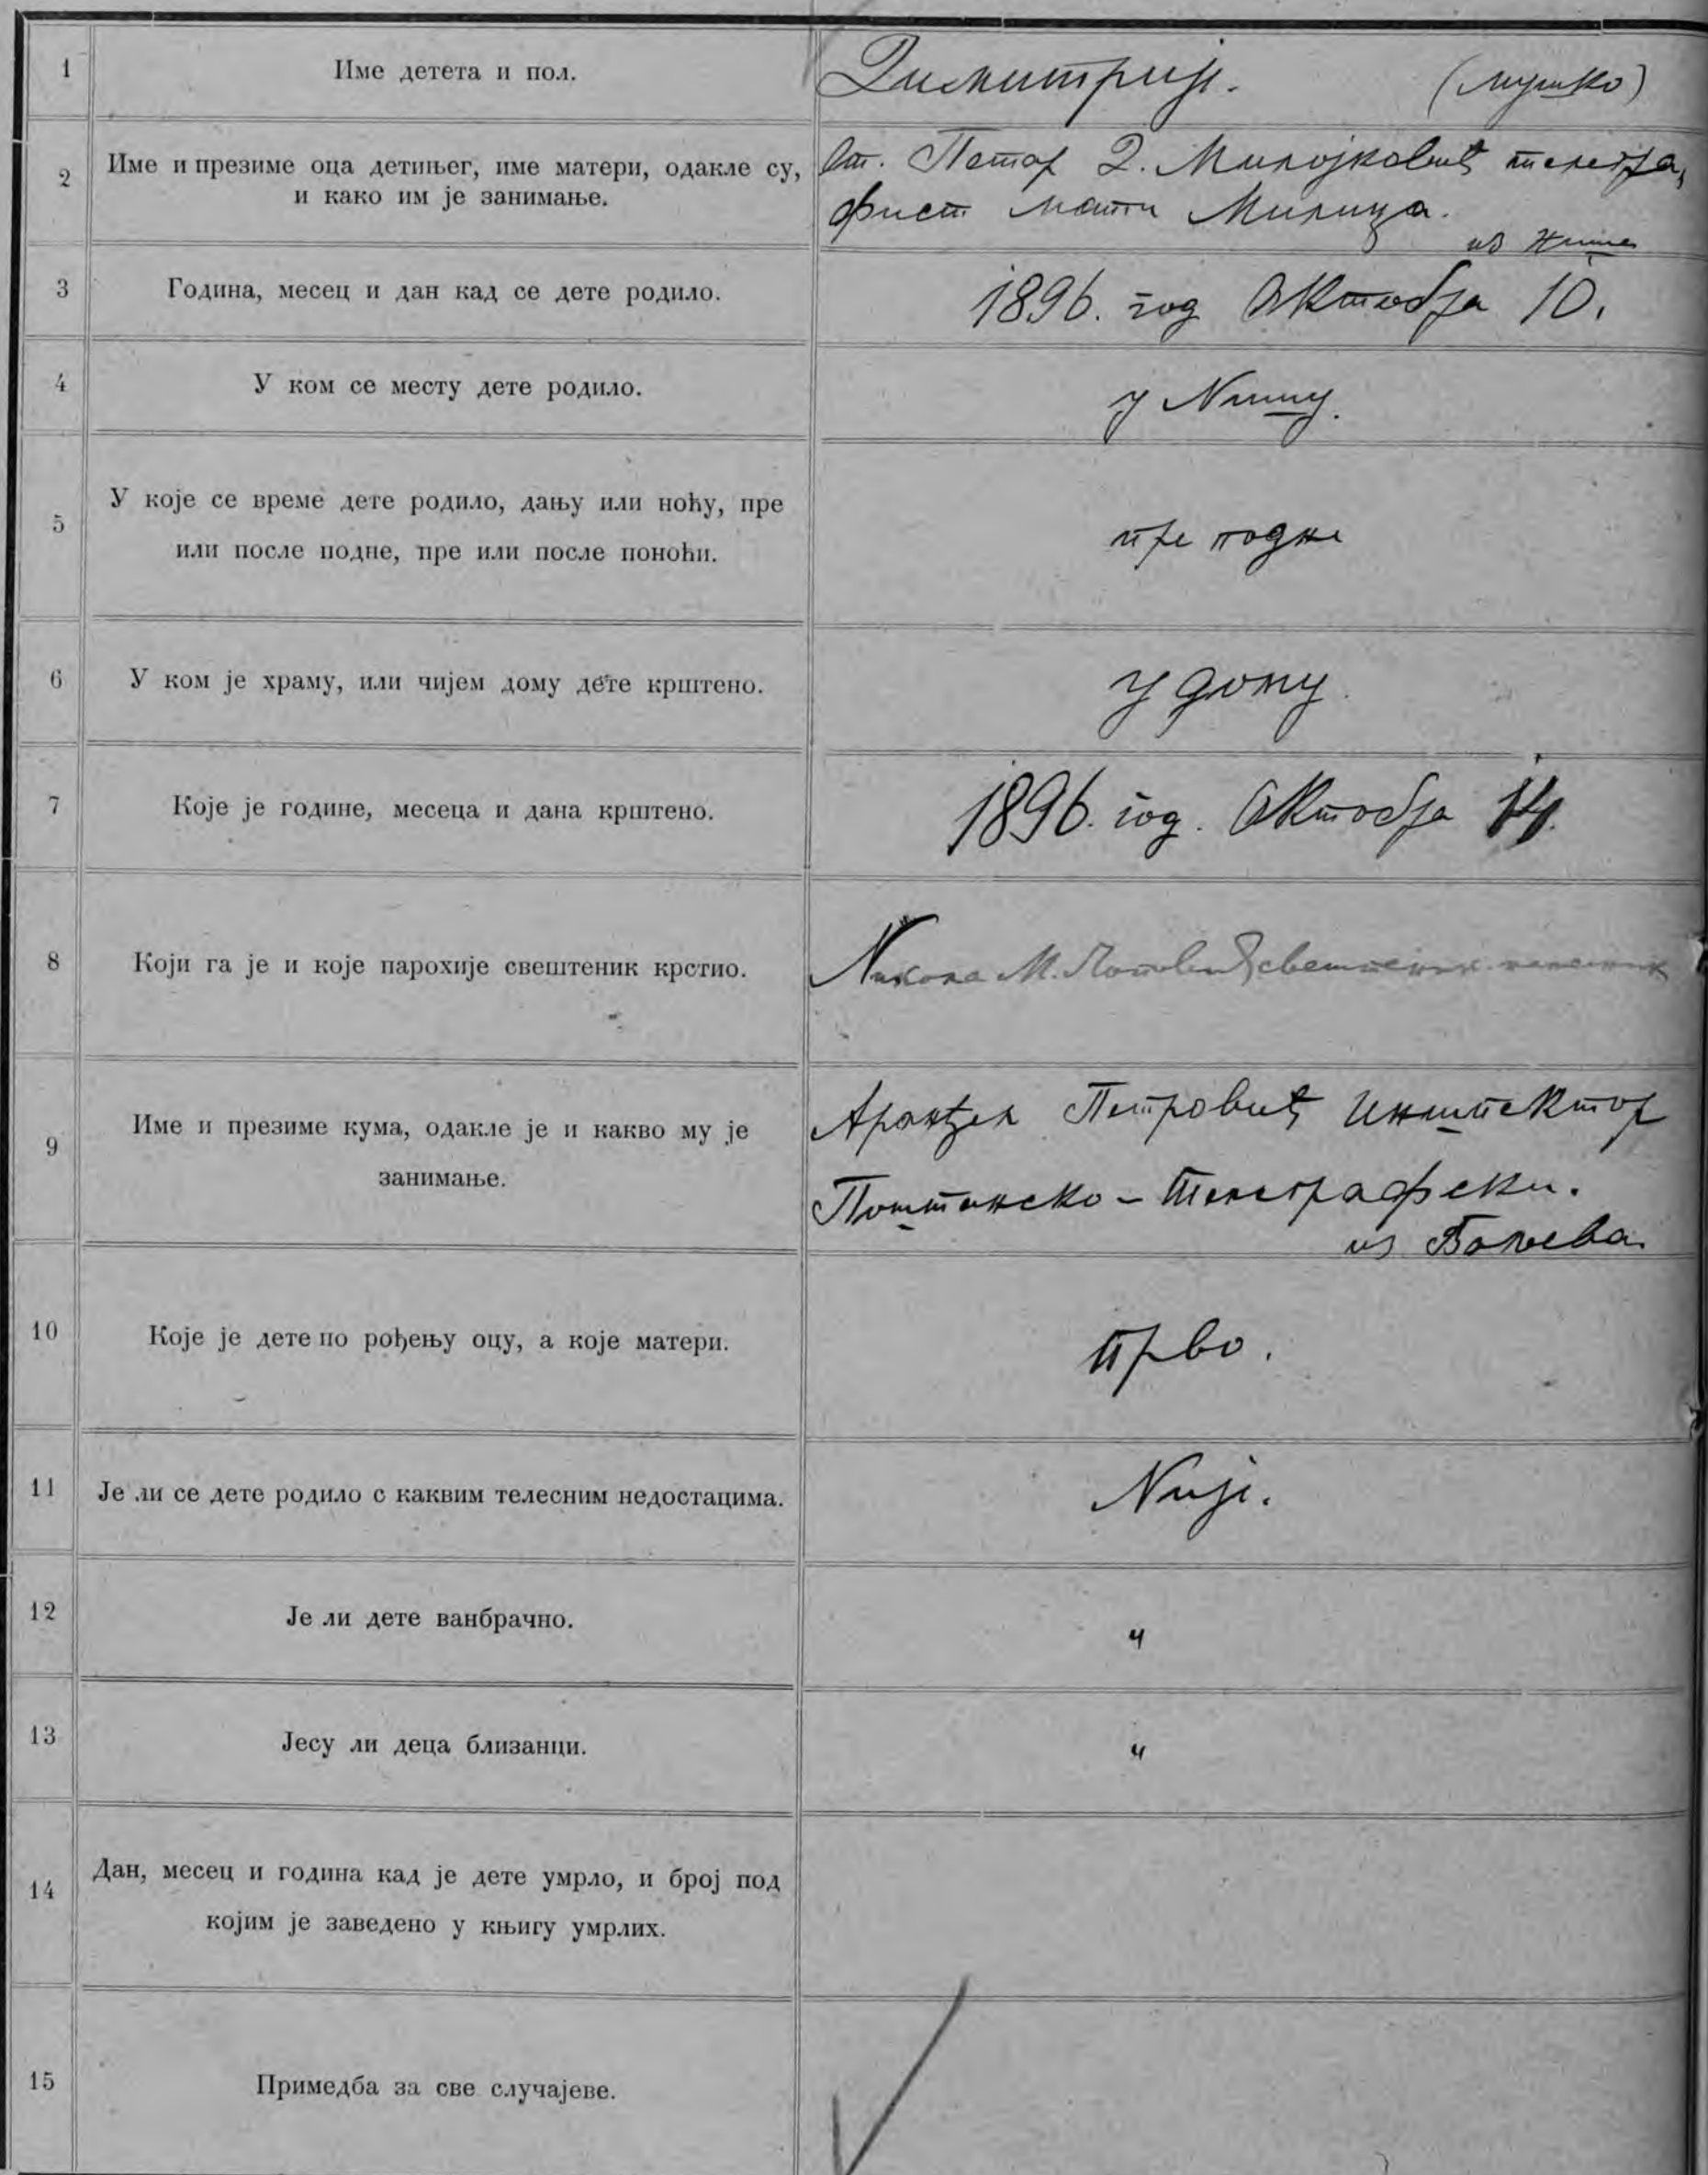 1 Име детета и пол. Димитрије. (мушко)
2 Име и презиме оца детињег, име матери, одакле су, От. Петар Д. Милојковић телегра,
и како им је занимање. фист мати Милица.
из Ниша
3 Година, месец и дан кад се дете родило. 1896. год Октобра 10.
4 У ком се месту дете родило. у Нишу.
5 У које се време дете родило, дању или ноћу, пре
или после подне, пре или после поноћи. пре подне
6 У ком је храму, или чијем дому дете крштено. у дому.
7 Које је године, месеца и дана крштено. 1896. год. Октобра 14.
8 Који га је и које парохије свештеник крстио. Никола М. Поповић свештеник
9 Име и презиме кума, одакле је и какво му је
занимање. Аранђел Петровић Иншпектор
Поштанско-Телеграфски.
из
10 Које је дете по рођењу оцу, а које матери. прво.
11 Је ли се дете родило с каквим телесним недостацима. Није.
12 Је ли дете ванбрачно. "
13 Јесу ли деца близанци. "
14 Дан, месец и година кад је дете умрло, и број под
којим је заведено у књигу умрлих.
15 Примедба за све случајеве.